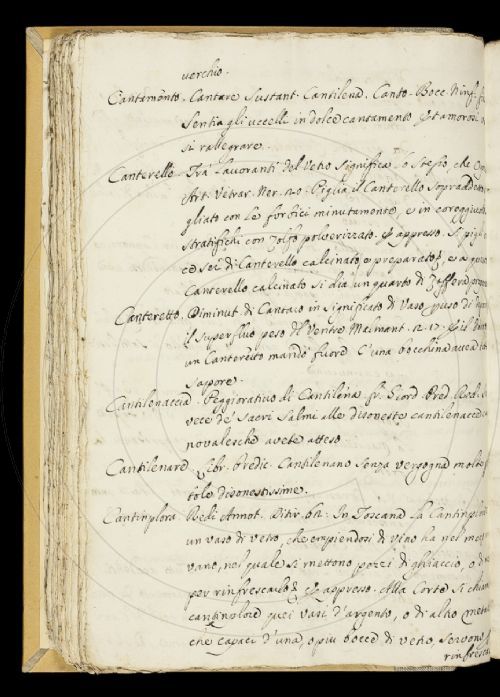 verchio.
Cantamento. Cantare Sustant. Cantilena. Canto. Bocc. Ninf.
Sentia gli uccelli in dolce cantamento Et amorosi
si rallegrare.
Canterello. Trà Lavoranti del Vetro significa lo stesso, che
Art. Vetrar. Ner. 20. Piglia il Canterello sopradd
gliato con le forfici minutamente, e in coreggiuolo
stratifichi con Zolfo polverizzato. E appresso. Si pigli
ce sei di Canterello calcinato, e preparato, e a
Canterello calcinato si dia un quarto di Zaffera
Canteretto. Diminut. di Cantaro in significato di Vaso, uuso di
il superfluo peso del Ventre Malmant. 2. 17.
un Canteretto mandò fuora C'una bocchina avea
sapore.
Cantilenaccia. Peggiorativo di Cantilena. fr. Giord. Pred. Red.
vece de' sacri Salmi alle disoneste cantilenacce
novalesche avete atteso
Cantilenare. Libr. Predic. Cantilenano senza vergogna
tole disonestissime.
Cantinplora. Redi Annot. Ditir. 62. In Toscana La Cantinplora
un vaso di vetro, che empiendosi di vino ha nel
vano, nel quale si mettono pezzi di ghiaccio, o di
per rinfrescarlo, E appresso. Alla Corte si chiam
cantinplore quei vasi d'argento, o di altro metallo
che capaci d'una, o piu bocce di vetro, servono
rinfresca